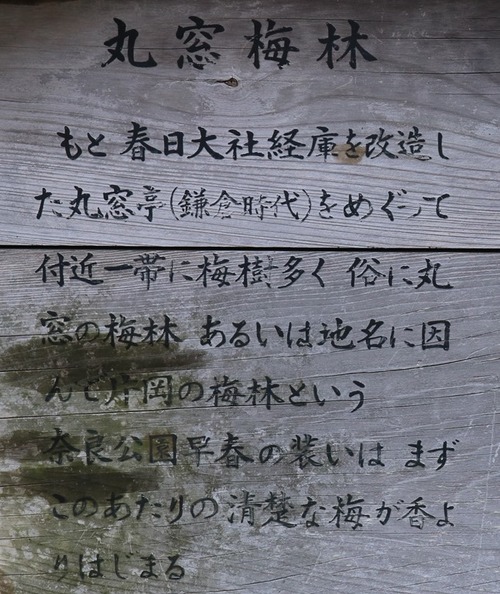 丸窓梅林
もと春日大社経庫を改造し
た丸窓亭(鎌倉時代)をめぐって
付近一帯に梅樹多く 俗に丸
窓の梅林 あるいは地名に因
んで片岡の梅林という
奈良公園早春の装いは まず
このあたりの清楚な梅が香よ
りはじまる